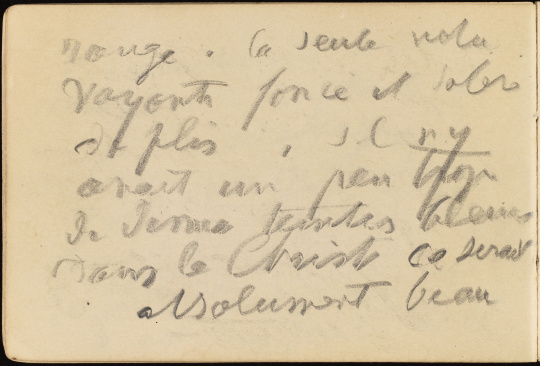 rouge. la seule note
rayonte foncé et sobre
de plis, s'il n'y
avait un peu trop
de demie teintes bleues
dans le Christ ce serait
absolument beau